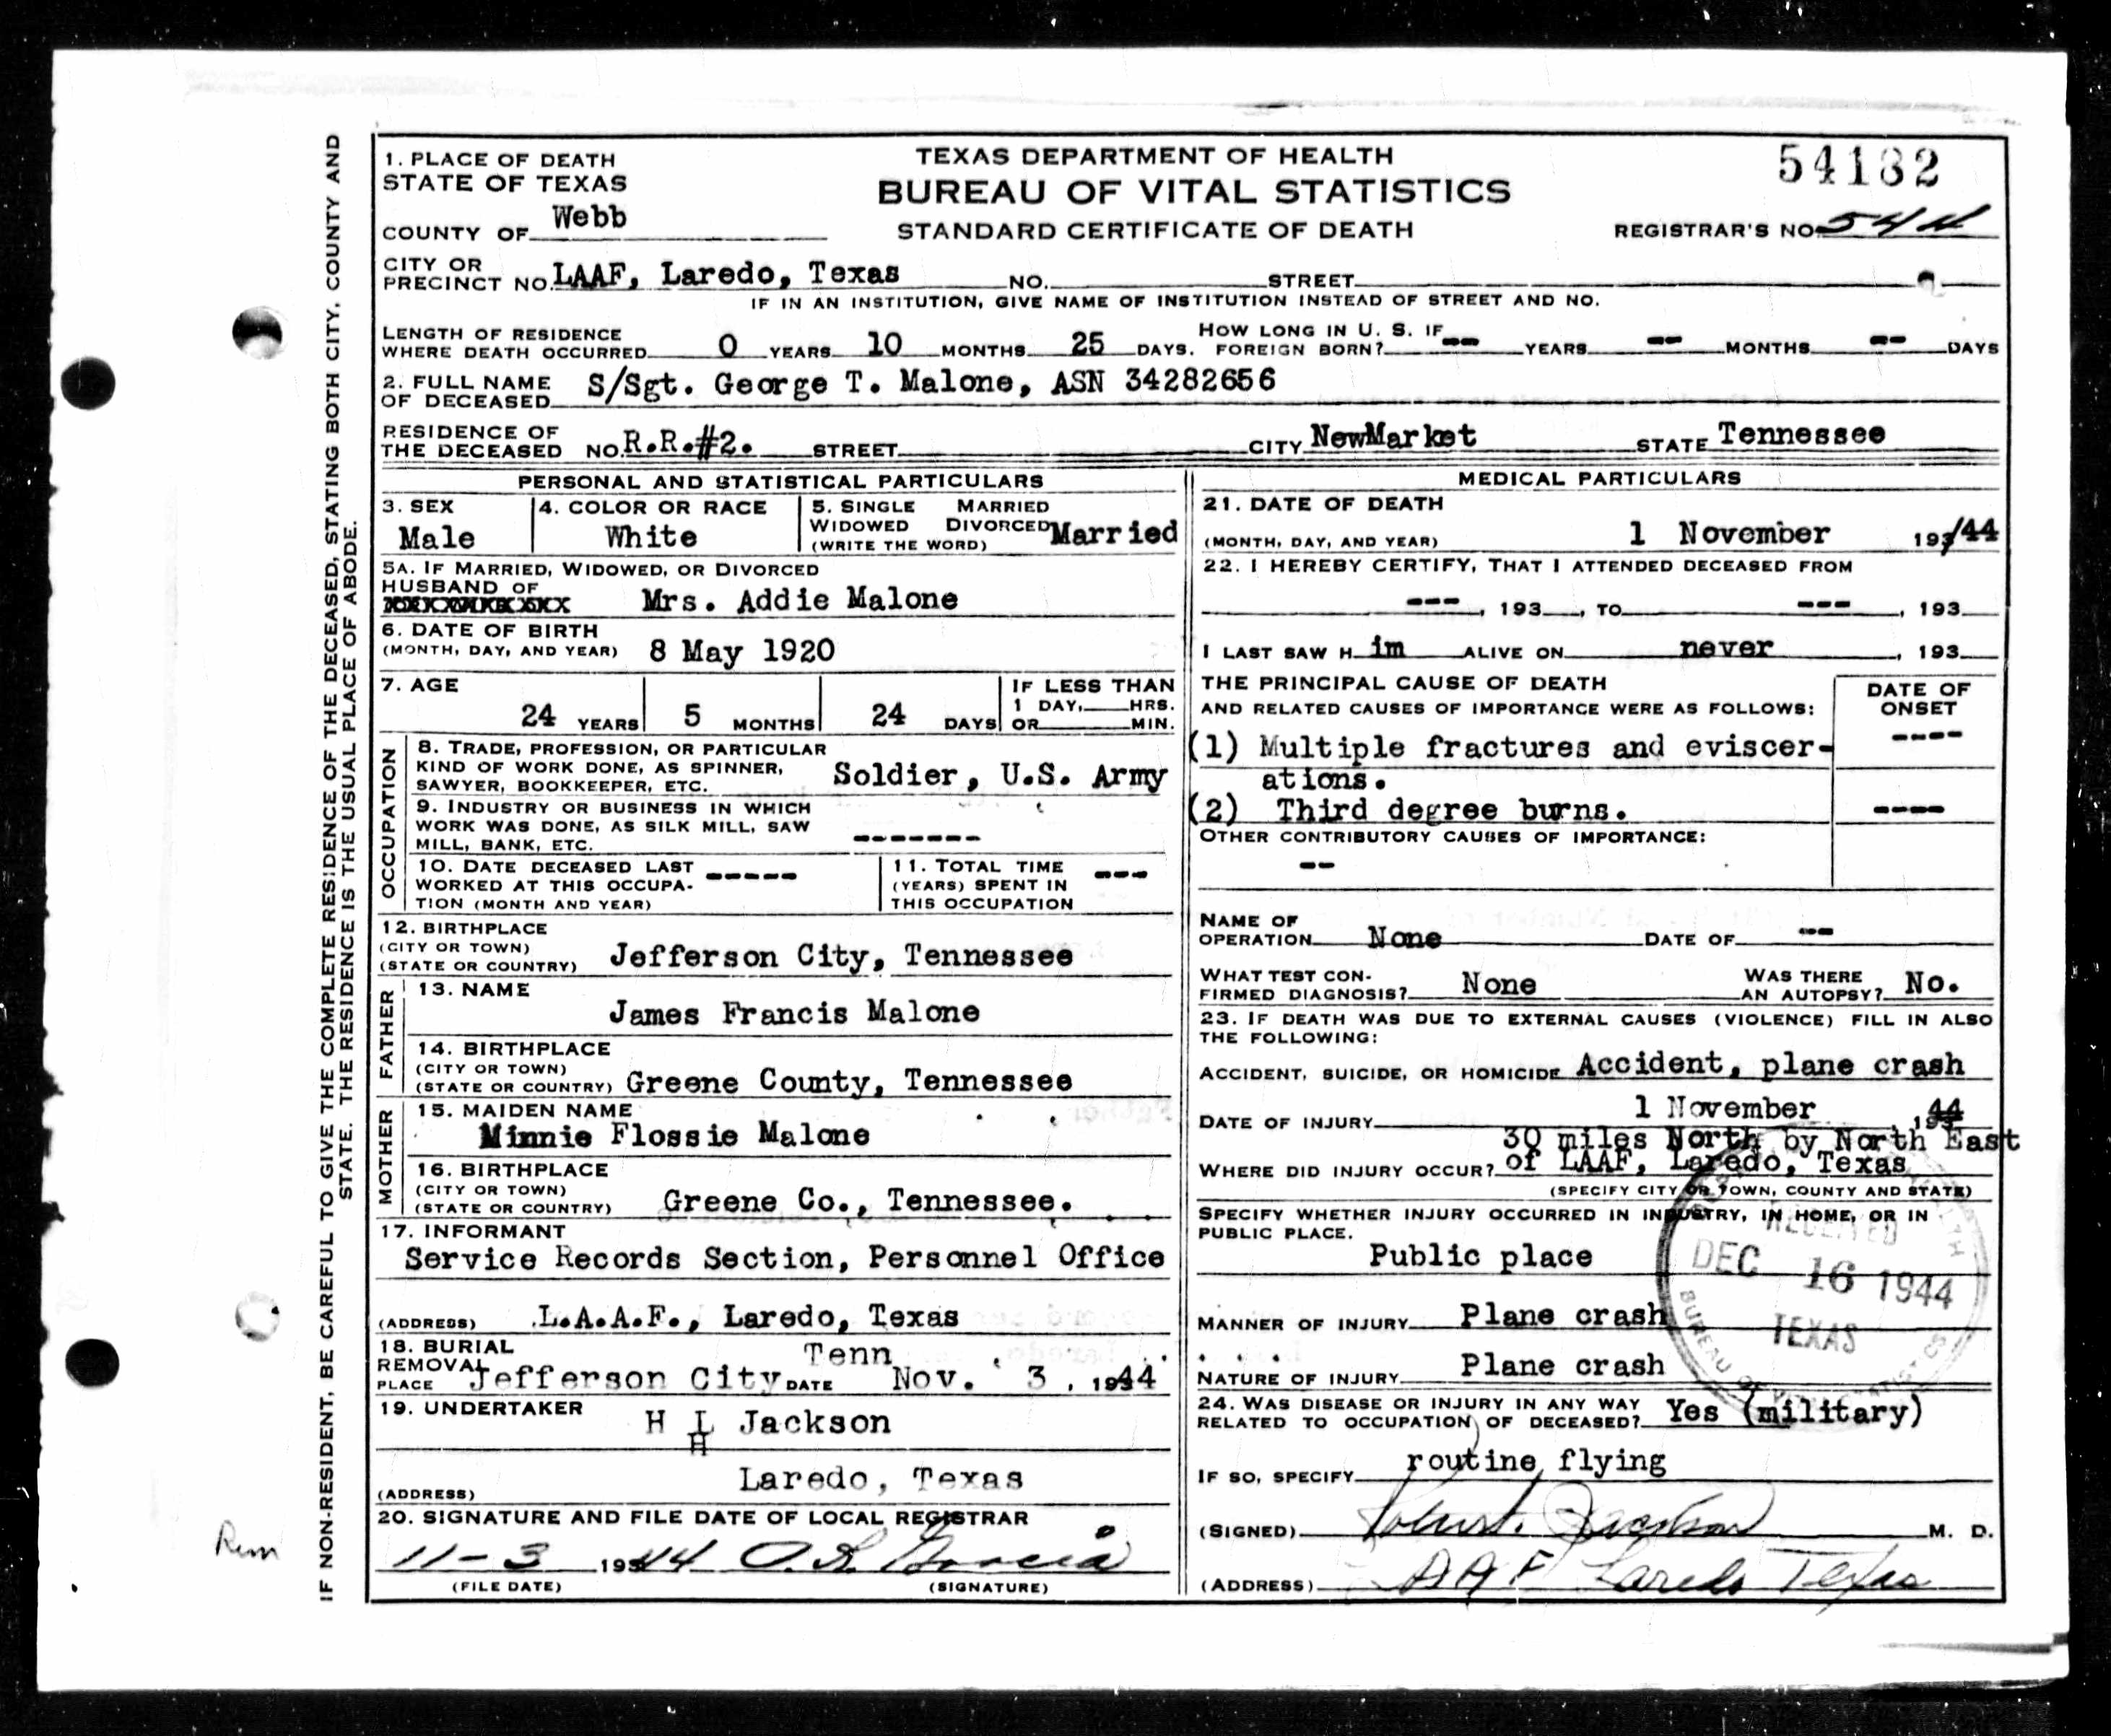 1. PLACE OF DEATH
STATE OF TEXAS
COUNTY OF Webb
TEXAS DEPARTMENT OF HEALTH
BUREAU OF VITAL STATISTICS
STANDARD CERTIFICATE OF DEATH
54182
REGISTRAR'S NO. 544
CITY OR
PRECINCT NO. LAAF, Laredo, Texas NO. STREET
IF IN AN INSTITUTION, GIVE NAME OF INSTITUTION INSTEAD OF STREET AND NO.
LENGTH OF RESIDENCE
WHERE DEATH OCCURRED 0 YEARS 10 MONTHS 25 DAYS.
HOW LONG IN U. S. IF
FOREIGN BORN? -- YEARS -- MONTHS -- DAYS
2. FULL NAME
OF DECEASED S/Sgt. George T. Malone, ASN 34282656
RESIDENCE OF
THE DECEASED NO. R.R.#2. STREET CITY NewMarket STATE Tennessee
PERSONAL AND STATISTICAL PARTICULARS
3. SEX
Male
4. COLOR OR RACE
White
5. SINGLE MARRIED
WIDOWED DIVORCED Married
(WRITE THE WORD)
5A. IF MARRIED, WIDOWED, OR DIVORCED
HUSBAND OF
Mrs. Addie Malone
6. DATE OF BIRTH
(MONTH, DAY, AND YEAR) 8 May 1920
7. AGE
24 YEARS 5 MONTHS 24 DAYS
IF LESS THAN
1 DAY, HRS.
OR MIN.
OCCUPATION
8. TRADE, PROFESSION, OR PARTICULAR
KIND OF WORK DONE, AS SPINNER,
SAWYER, BOOKKEEPER, ETC. Soldier, U.S. Army
9. INDUSTRY OR BUSINESS IN WHICH
WORK WAS DONE, AS SILK MILL, SAW
MILL, BANK, ETC. -------
10. DATE DECEASED LAST
WORKED AT THIS OCCUPA- -----
TION (MONTH AND YEAR)
11. TOTAL TIME
(YEARS) SPENT IN ---
THIS OCCUPATION
12. BIRTHPLACE
(CITY OR TOWN)
(STATE OR COUNTRY) Jefferson City, Tennessee
FATHER
13. NAME
James Francis Malone
14. BIRTHPLACE
(CITY OR TOWN)
(STATE OR COUNTRY) Greene County, Tennessee
MOTHER
15. MAIDEN NAME
Minnie Flossie Malone
16. BIRTHPLACE
(CITY OR TOWN)
(STATE OR COUNTRY) Greene Co., Tennessee.
17. INFORMANT
Service Records Section, Personnel Office
(ADDRESS) L.A.A.F., Laredo, Texas
18. BURIAL Tenn
REMOVAL
PLACE Jefferson City DATE Nov. 3, 1944
19. UNDERTAKER H L Jackson
H
(ADDRESS) Laredo, Texas
20. SIGNATURE AND FILE DATE OF LOCAL REGISTRAR
11-3 1944 O. K. Garcia
(FILE DATE) (SIGNATURE)
MEDICAL PARTICULARS
21. DATE OF DEATH
(MONTH, DAY, AND YEAR) 1 November 193/44
22. I HEREBY CERTIFY, THAT I ATTENDED DECEASED FROM
---, 193 , TO ---, 193
I LAST SAW H im ALIVE ON never, 193
THE PRINCIPAL CAUSE OF DEATH
AND RELATED CAUSES OF IMPORTANCE WERE AS FOLLOWS:
DATE OF
ONSET
(1) Multiple fractures and eviscer- ----
ations.
(2) Third degree burns. ----
OTHER CONTRIBUTORY CAUSES OF IMPORTANCE:
--
NAME OF
OPERATION None DATE OF --
WHAT TEST CON-
FIRMED DIAGNOSIS? None
WAS THERE
AN AUTOPSY? No.
23. IF DEATH WAS DUE TO EXTERNAL CAUSES (VIOLENCE) FILL IN ALSO
THE FOLLOWING:
ACCIDENT, SUICIDE, OR HOMICIDE Accident, plane crash
DATE OF INJURY 1 November 1944
30 miles North by North East
WHERE DID INJURY OCCUR? of LAAF, Laredo, Texas
(SPECIFY CITY OR TOWN, COUNTY AND STATE)
SPECIFY WHETHER INJURY OCCURRED IN INDUSTRY, IN HOME, OR IN
PUBLIC PLACE.
Public place
MANNER OF INJURY Plane crash
NATURE OF INJURY Plane crash
RECEIVED
DEC 16 1944
TEXAS
BUREAU OF VITAL STATISTICS
24. WAS DISEASE OR INJURY IN ANY WAY
RELATED TO OCCUPATION OF DECEASED? Yes (military)
IF SO, SPECIFY routine flying
(SIGNED) Robert Jackson M. D.
(ADDRESS) AAF Laredo Texas
IF NON-RESIDENT, BE CAREFUL TO GIVE THE COMPLETE RESIDENCE OF THE DECEASED, STATING BOTH CITY, COUNTY AND
STATE. THE RESIDENCE IS THE USUAL PLACE OF ABODE.
Rem